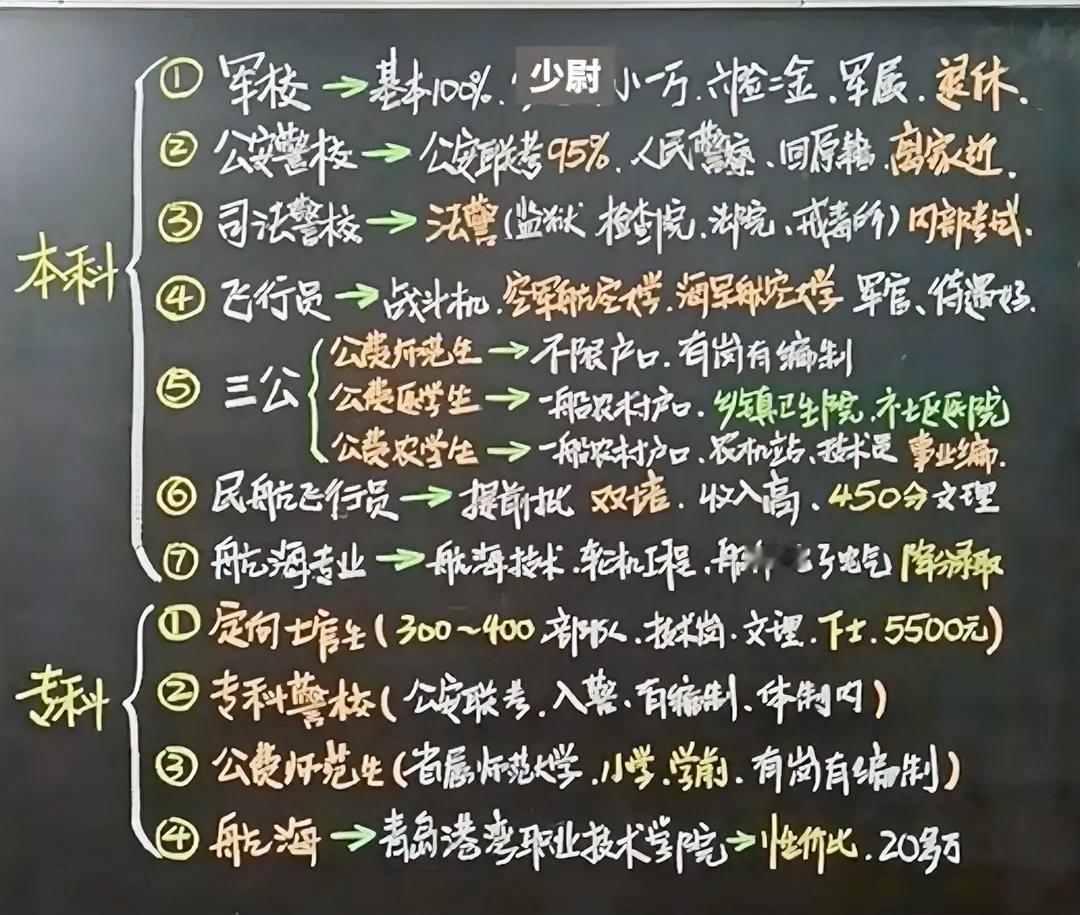 本科
① 军校→基本100%. 少尉 小一万.六险二金.军属.退休.
② 公安警校→公安联考95%.人民警察.回原籍 离家近.
③ 司法警校→法警(监狱 检查院.法院、戒毒所)内部考试.
④ 飞行员→战斗机.空军航空大学.海军航空大学 军官、待遇好.
⑤ 三公
公费师范生→不限户口.有岗有编制
公费医学生→一般农村户口.乡镇卫生院.社区医院
公费农学生→一般农村户口.农机站、技术员 事业编.
⑥ 民航飞行员→提前批 双培.收入高.450分文理
⑦ 航海专业→航海技术.轮机工程.船 子电气 降分录取
专科
① 定向士官生(300~400.部队.技术岗.文理.下士.5500元)
② 专科警校(公安联考.入警、有编制、体制内)
③ 公费师范生(省属师范大学.小学.学前.有岗有编制)
④ 航海→青岛港湾职业技术学院→性价比.20多万